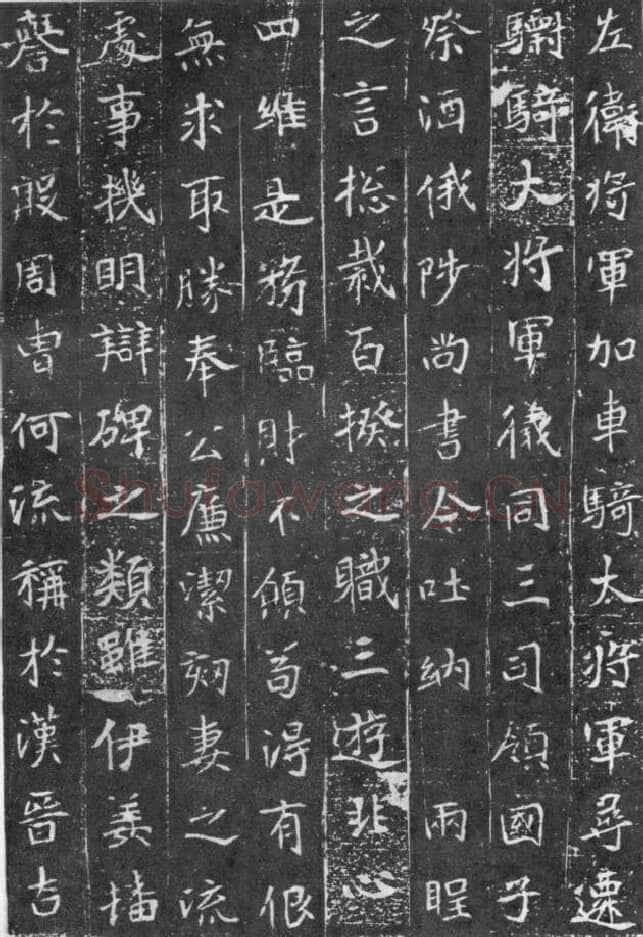 左衛将軍加車騎太将軍尋遷
驃騎大将軍儀同三司領國子
祭酒俄陟尚書令吐納兩
之言揔裁百揆之職三遊非心
四維是務臨財不傾苟得有佷
無求取勝奉公廉潔妻之流
處事機明辯碑之類雖伊姜播
譽於殷周曹何流稱於漢晉古
Shufawang.CN